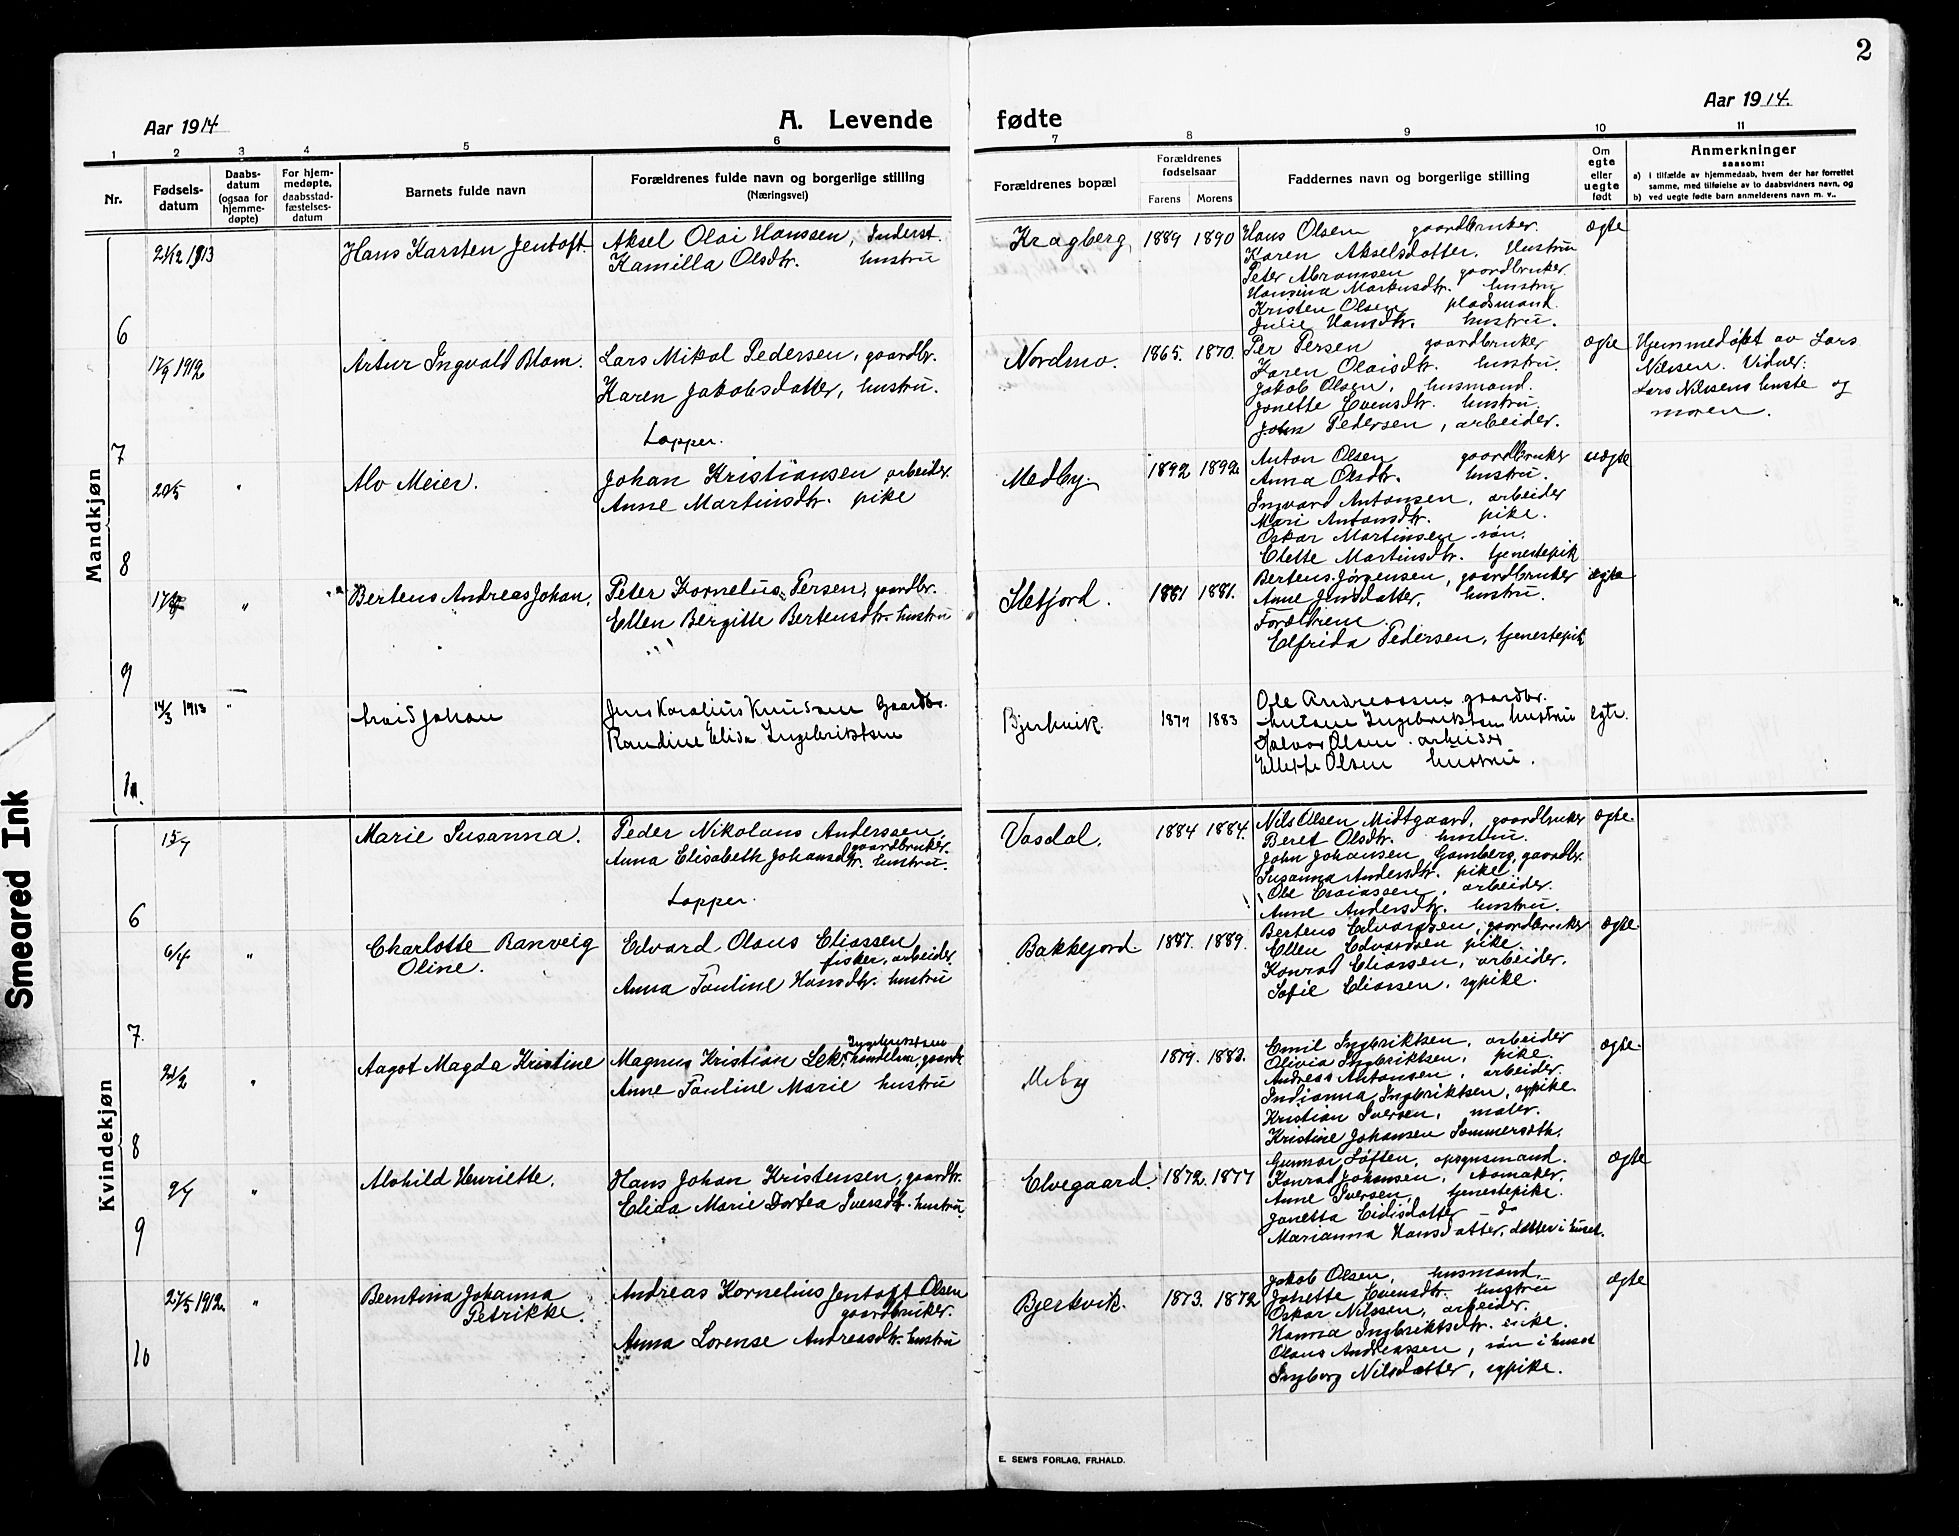 2
Aar 1914
A. Levende fødte
Aar 1914.
1 2 3 4 5 6 7 8 9 10 11
Nr.
Fødsels-
datum
Daabs-
datum
(ogsaa for
hjemme-
døpte)
For hjem-
medøpte,
daabsstad-
fæstelses-
datum
Barnets fulde navn
Forældrenes fulde navn og borgerlige stilling
(Næringsvei)
Forældrenes bopæl
Forældrenes
fødselsaar
Farens Morens
Faddernes navn og borgerlige stilling
Om
egte
eller
uegte
født
Anmerkninger
saasom:
a) i tilfælde av hjemmedaab, hvem der har forrettet
samme, med tilføielse av to daabsvidners navn, og
b) ved uegte fødte barn anmelderens navn m. v..
Mandkjøn
6
21/12 1913
Hans Karsten Jentoft.
Aksel Olai Hanssen, Inderst.
Kamilla Olsdtr. hustru
Kragberg,
1889 1890
Hans Olsen gaardbruker.
Karen Akselsdatter. Hustru
Peter Abramsen gaardbruker.
Hansina Markusdtr. hustru
Kristen Olsen pladsmand.
Julie Hansdtr. hustru.
egte
7
17/9 1912
Artur Ingvald Blom.
Lars Mikal Pedersen, gaardbr.
Karen Jakobsdatter, hustru.
Lapper.
Nordmo.
1865. 1870.
Per Persen gaardbruker
Karen Olaisdtr. hustru.
Jakob Olsen, husmand.
Jonette Evensdtr. hustru.
John Pedersen, arbeider.
egte
Hjemmedøbt av Lars
Nilssen. Vidner:
Lars Nilssens huste og
moren.
8
20/5 "
Alv Meier.
Johan Kristiansen arbeider.
Anne Martinsdtr. pike
Medby.
1892 1892.
Anton Olsen gaardbruker
Anna Olsdtr. hustru.
Ingvard Antonsen, arbeider
Mari Antonsdtr. pike.
Oskar Martinsen søn.
Elette Martinsdtr. tjenestepik
uegte
9
"
Bertens Andreas Johan.
Peter Kornelius Persen, gaardbr.
Ellen Bergitte Bertensdtr. hustru
1881 1881.
Bertens Jørgensen, gaardbruker
Anne Jensdatter, hustru.
Forældrene.
Elfrida Pedersen, tjenestepik
egte
10.
14/3 1913 "
Johan
Jens Karolius Knudsen Gaardbr.
Randine Elida Ingebriktsen
Bjerkvik.
1877 1883
Ole Andreassen gaardbr.
Ingebriktsen hustru
Halvor Olsen. arbeider
Ellette Olsen hustru.
egte.
Kvindekjøn
6
15/7
Marie Susanna.
Peder Nikolaus Anderssen,
gaardbruker.
Anna Elisabeth Johansdtr. hustru.
Lapper.
Vasdal.
1884 1884.
Nils Olsen Midtgaard, gaardbruker
Beret Olsdtr. hustru.
John Johansen Gamberg, gaardbr.
Susanna Andersdtr. pike.
Ole Esaiassen, arbeider.
Anne Andersdtr. hustru.
egte.
7.
6/4 "
Charlotte Ranveig
Oline.
Edvard Olaus Eliassen
fisker, arbeider.
Anna Pauline Hansdtr. hustru
Bakkejord.
1887. 1889.
Bertens Edvardsen, gaardbruker
Ellen Edvardsen pike.
Konrad Eliassen, arbeider.
Sofie Eliassen, sypike.
egte.
8
21/2 "
Aagot Magda Kristine
Ingebriktsen
Magnus Kristian handelsm, gaardbr.
Anne Pauline Marie hustru
Meby
1879.
Emil Ingbriktsen, arbeider
Olivia Ingbriktsen, pike.
Andreas Antonsen, arbeider.
Indianna Ingbriktsen, sypike.
Kristian Iversen, maler.
Kristine Johansen
egte.
9
9/7 "
Alvhild Henriette.
Hans Johan Kristensen, gaardbr.
Elida Marie Dortea Iversdtr. hustru.
Elvegaard.
1872. 1877
Gunnar Løften, opsynsmand.
Konrad Johansen, skomaker.
Anne Iversen, tjenestepike.
Janetta Eidisdatter — do
Marianna Hansdatter, datter i huset.
egte
10
27/5 1912. "
Berntina Johanna
Petrikke.
Andreas Kornelius Jentoft Olsen
gaardbruker.
Anna Lorense Andreasdtr. hustru
Bjerkvik.
1873. 1872
Jakob Olsen, husmand.
Johette Evensdtr. hustru
Oskar Nilssen, arbeider.
Hanna Ingbriktsdtr. pike.
Olaus Andreassen, søn i huset
Ingborg Nilsdatter, sypike.
egte
E. SEM'S FORLAG, FR.HALD.
Smeared Ink